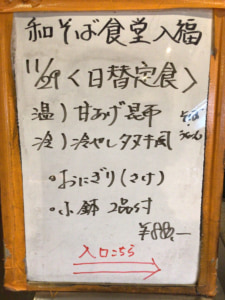 和そば食堂入福
11/29 <日替定食>
温) 甘あげ昆布
冷) 冷やしタヌキ風
・おにぎり(さけ)
・小鉢 2品付
¥880,-
入口こちら